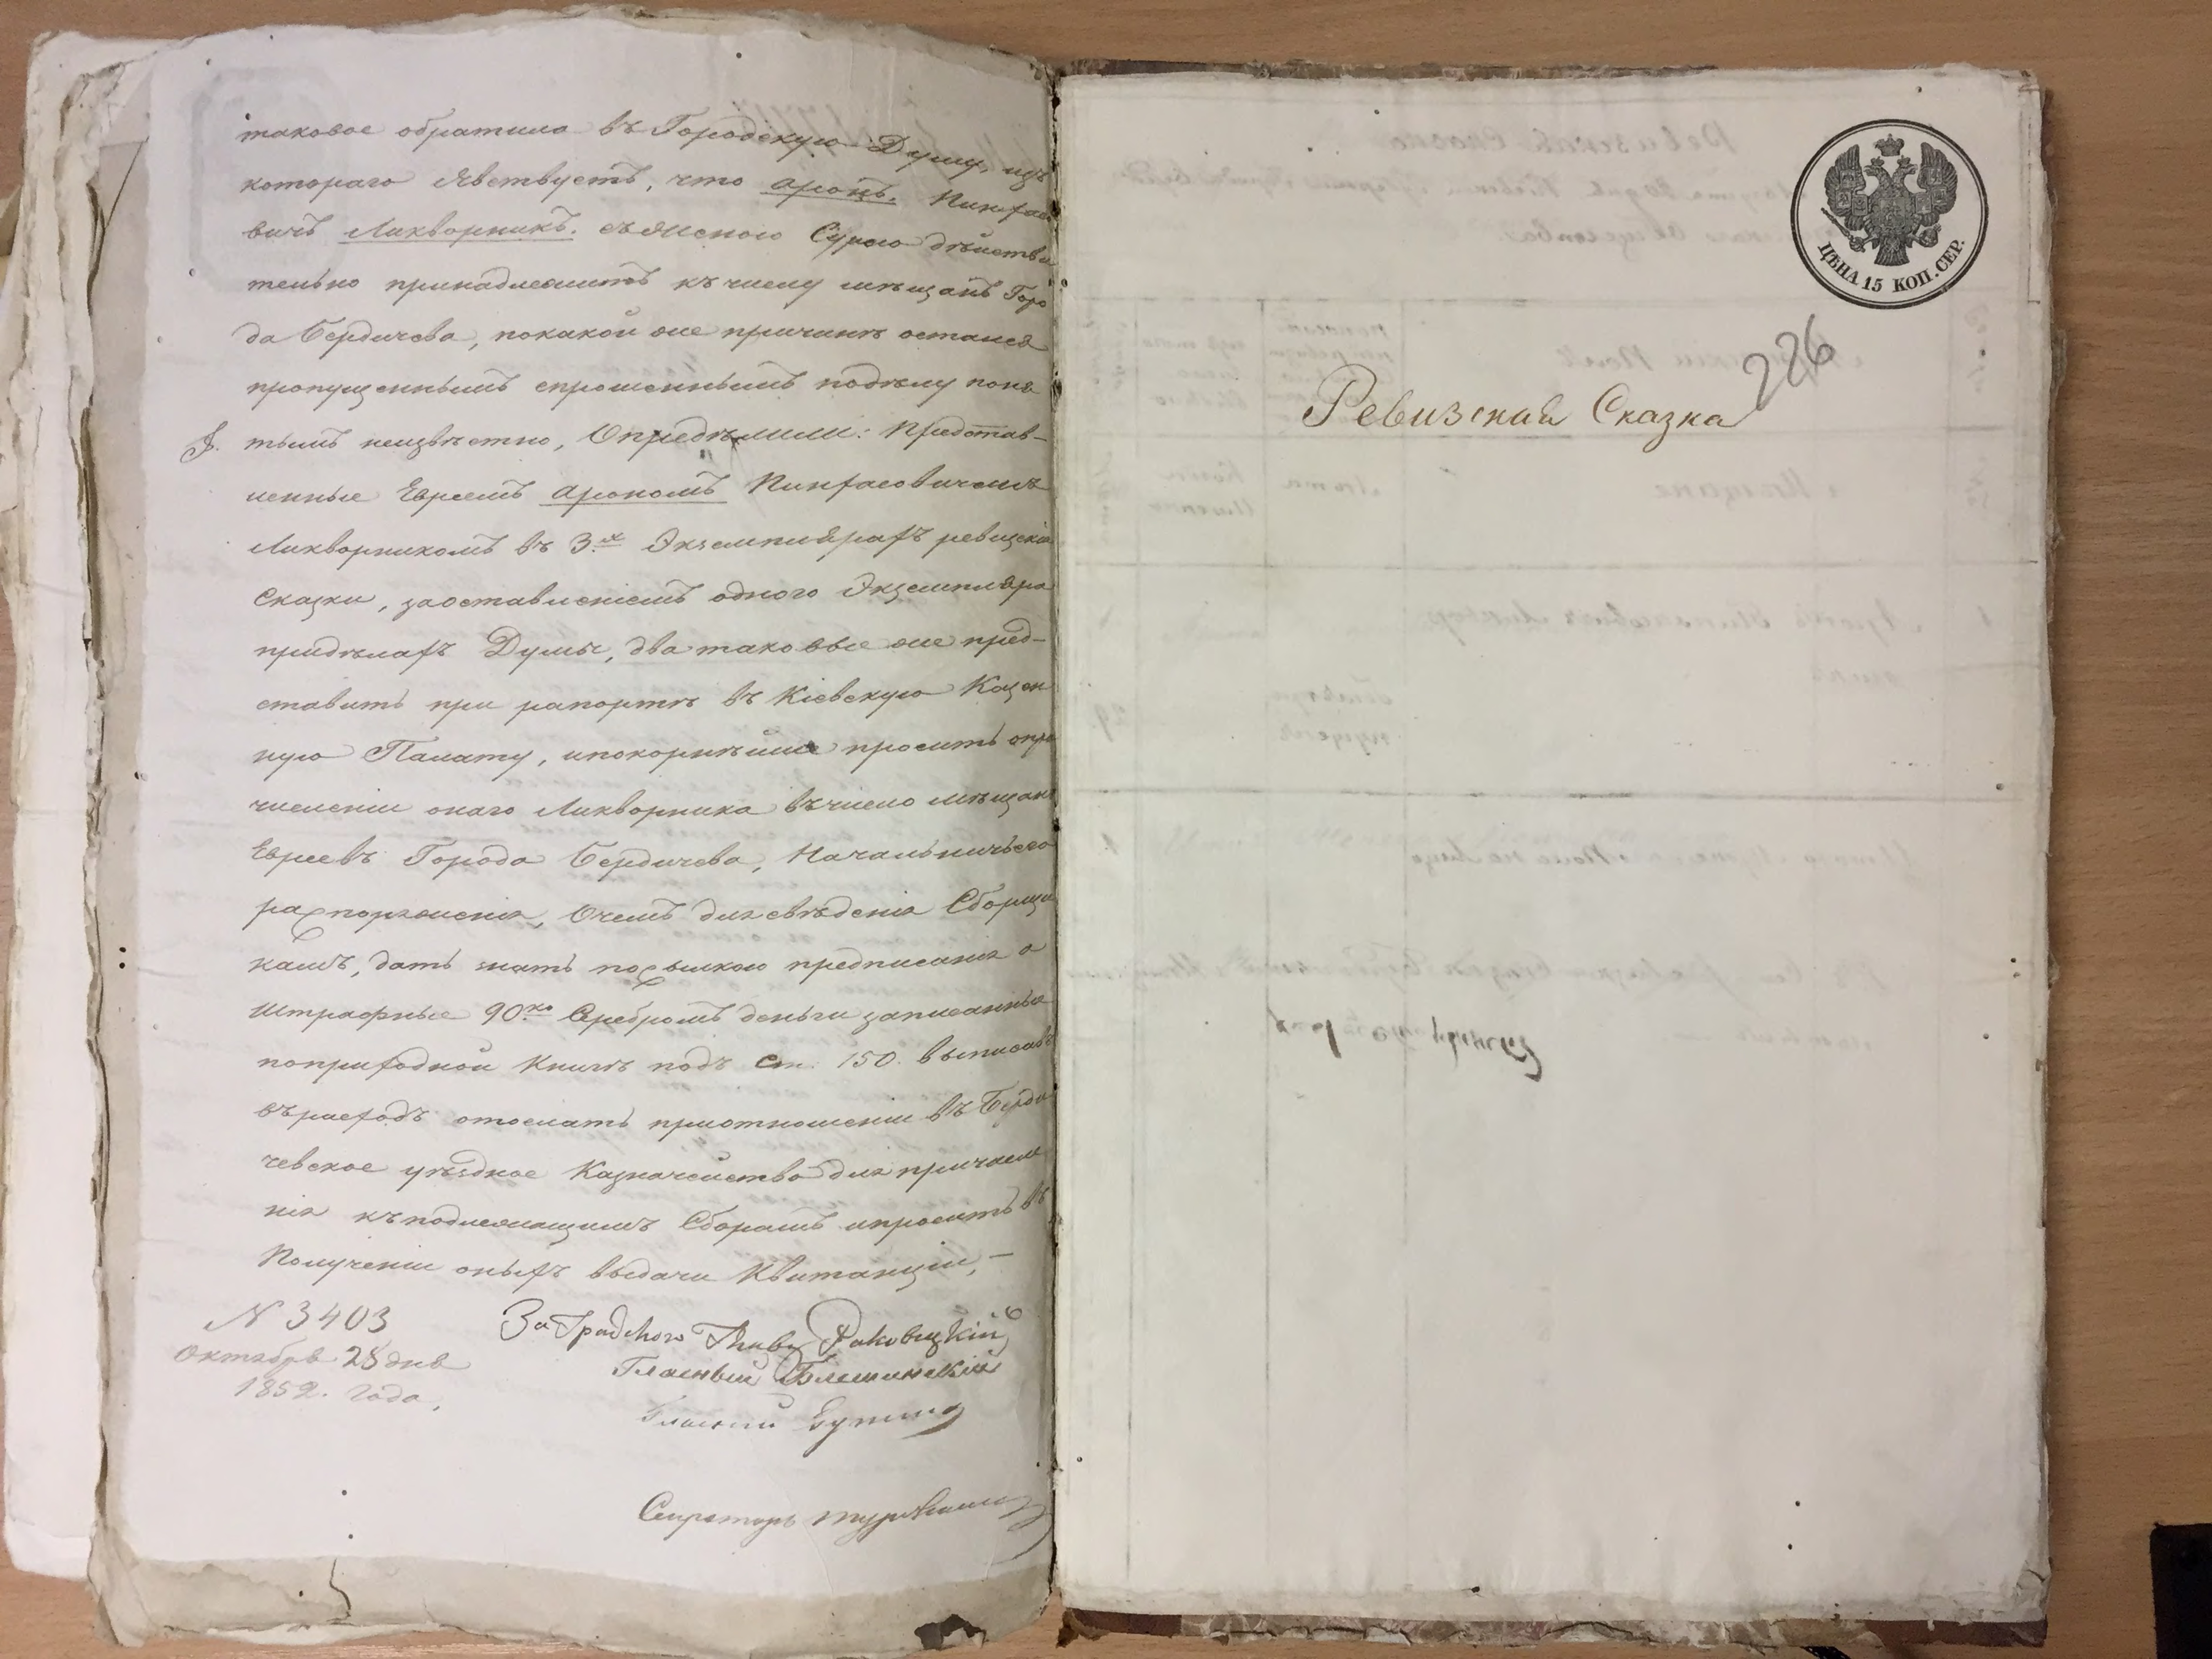 таковое обратила въ Городскую Думу, изъ
котораго явствуетъ, что Аронъ. Пинхасо
вичъ Ликворникъ. съ женою Сурою действи
тельно принадлежитъ къ числу мѣщанъ Горо
да Бердичева, покакой же причинѣ остался
пропущеннымъ спрошеннымъ подѣлу поня
тымъ неизвѣстно, Опредѣлили: Представ-
ленные Евреемъ Арономъ Пинхасовичемъ
Ликворникомъ въ 3.х Экземплярахъ ревизскія
Сказки, заоставленіемъ одного Экземпляра
придѣлахъ Думы, два таковые же пред-
ставить при рапортѣ въ Кіевскую Казен
ную Палату, ипокорнѣйше просить опри
численіи онаго Ликворника въчисло мѣщанъ
Евреевъ Города Бердичева, Начальничьего
распоряженія, Очемъ для свѣденія Сборщи
камъ, дать знать посылкою предписанія а
Штрафные 90.ко Серебромъ деньги записанные
поприходной Книгѣ подъ Ст. 150. выписавъ
въ расходъ отослать приотношеніи въ Берди
чевское уѣздное Казначейство для причисле
нія къподлежащимъ Сборамъ ипросить въ
Полученіи оныхъ выдачи Квитанціи, —
N 3403
Октября 28 дня
1852. года.
За Градскаго Главу Раковицкій
Гласный
Гласный
Секретарь
ЦѢНА 15 КОП. СЕР.
226
Ревизская Сказка